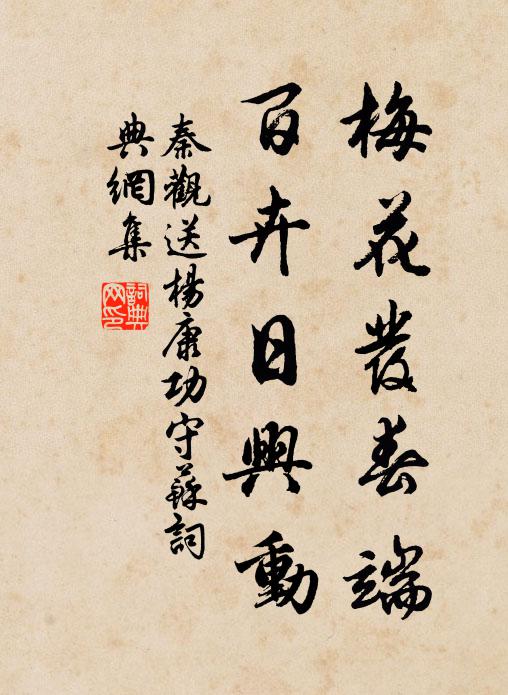 梅花發春端
百卉日興動
秦觀送楊康功守蘇詞
典網集
詞典網印